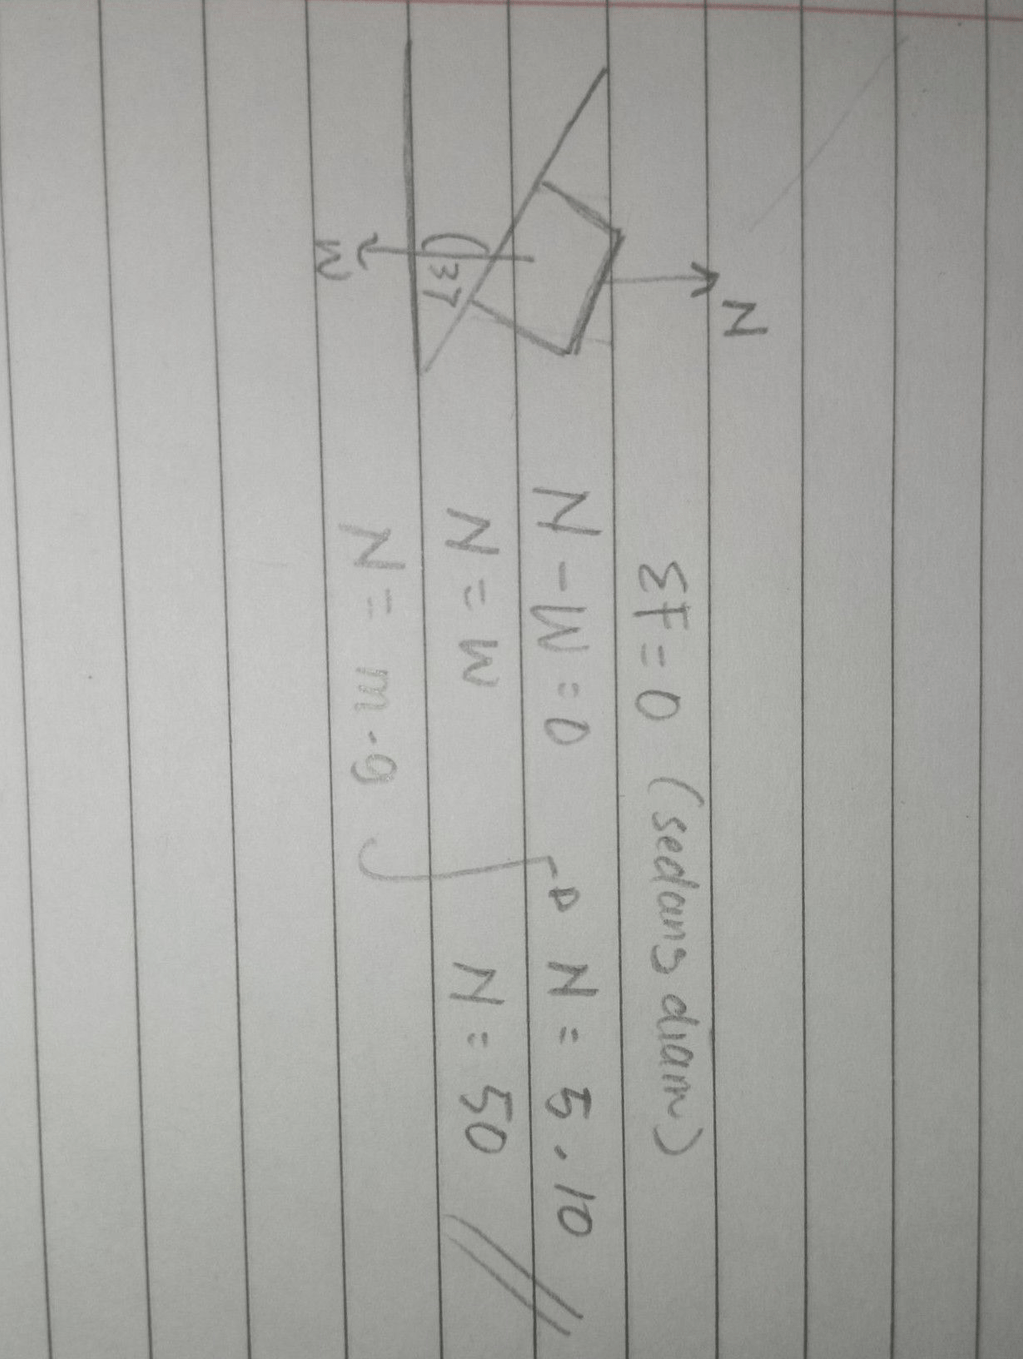 N
37
W
ΣF = 0 (sedang diam)
N - W = 0
N = W
N = m . g
N = 5 . 10
N = 50 //